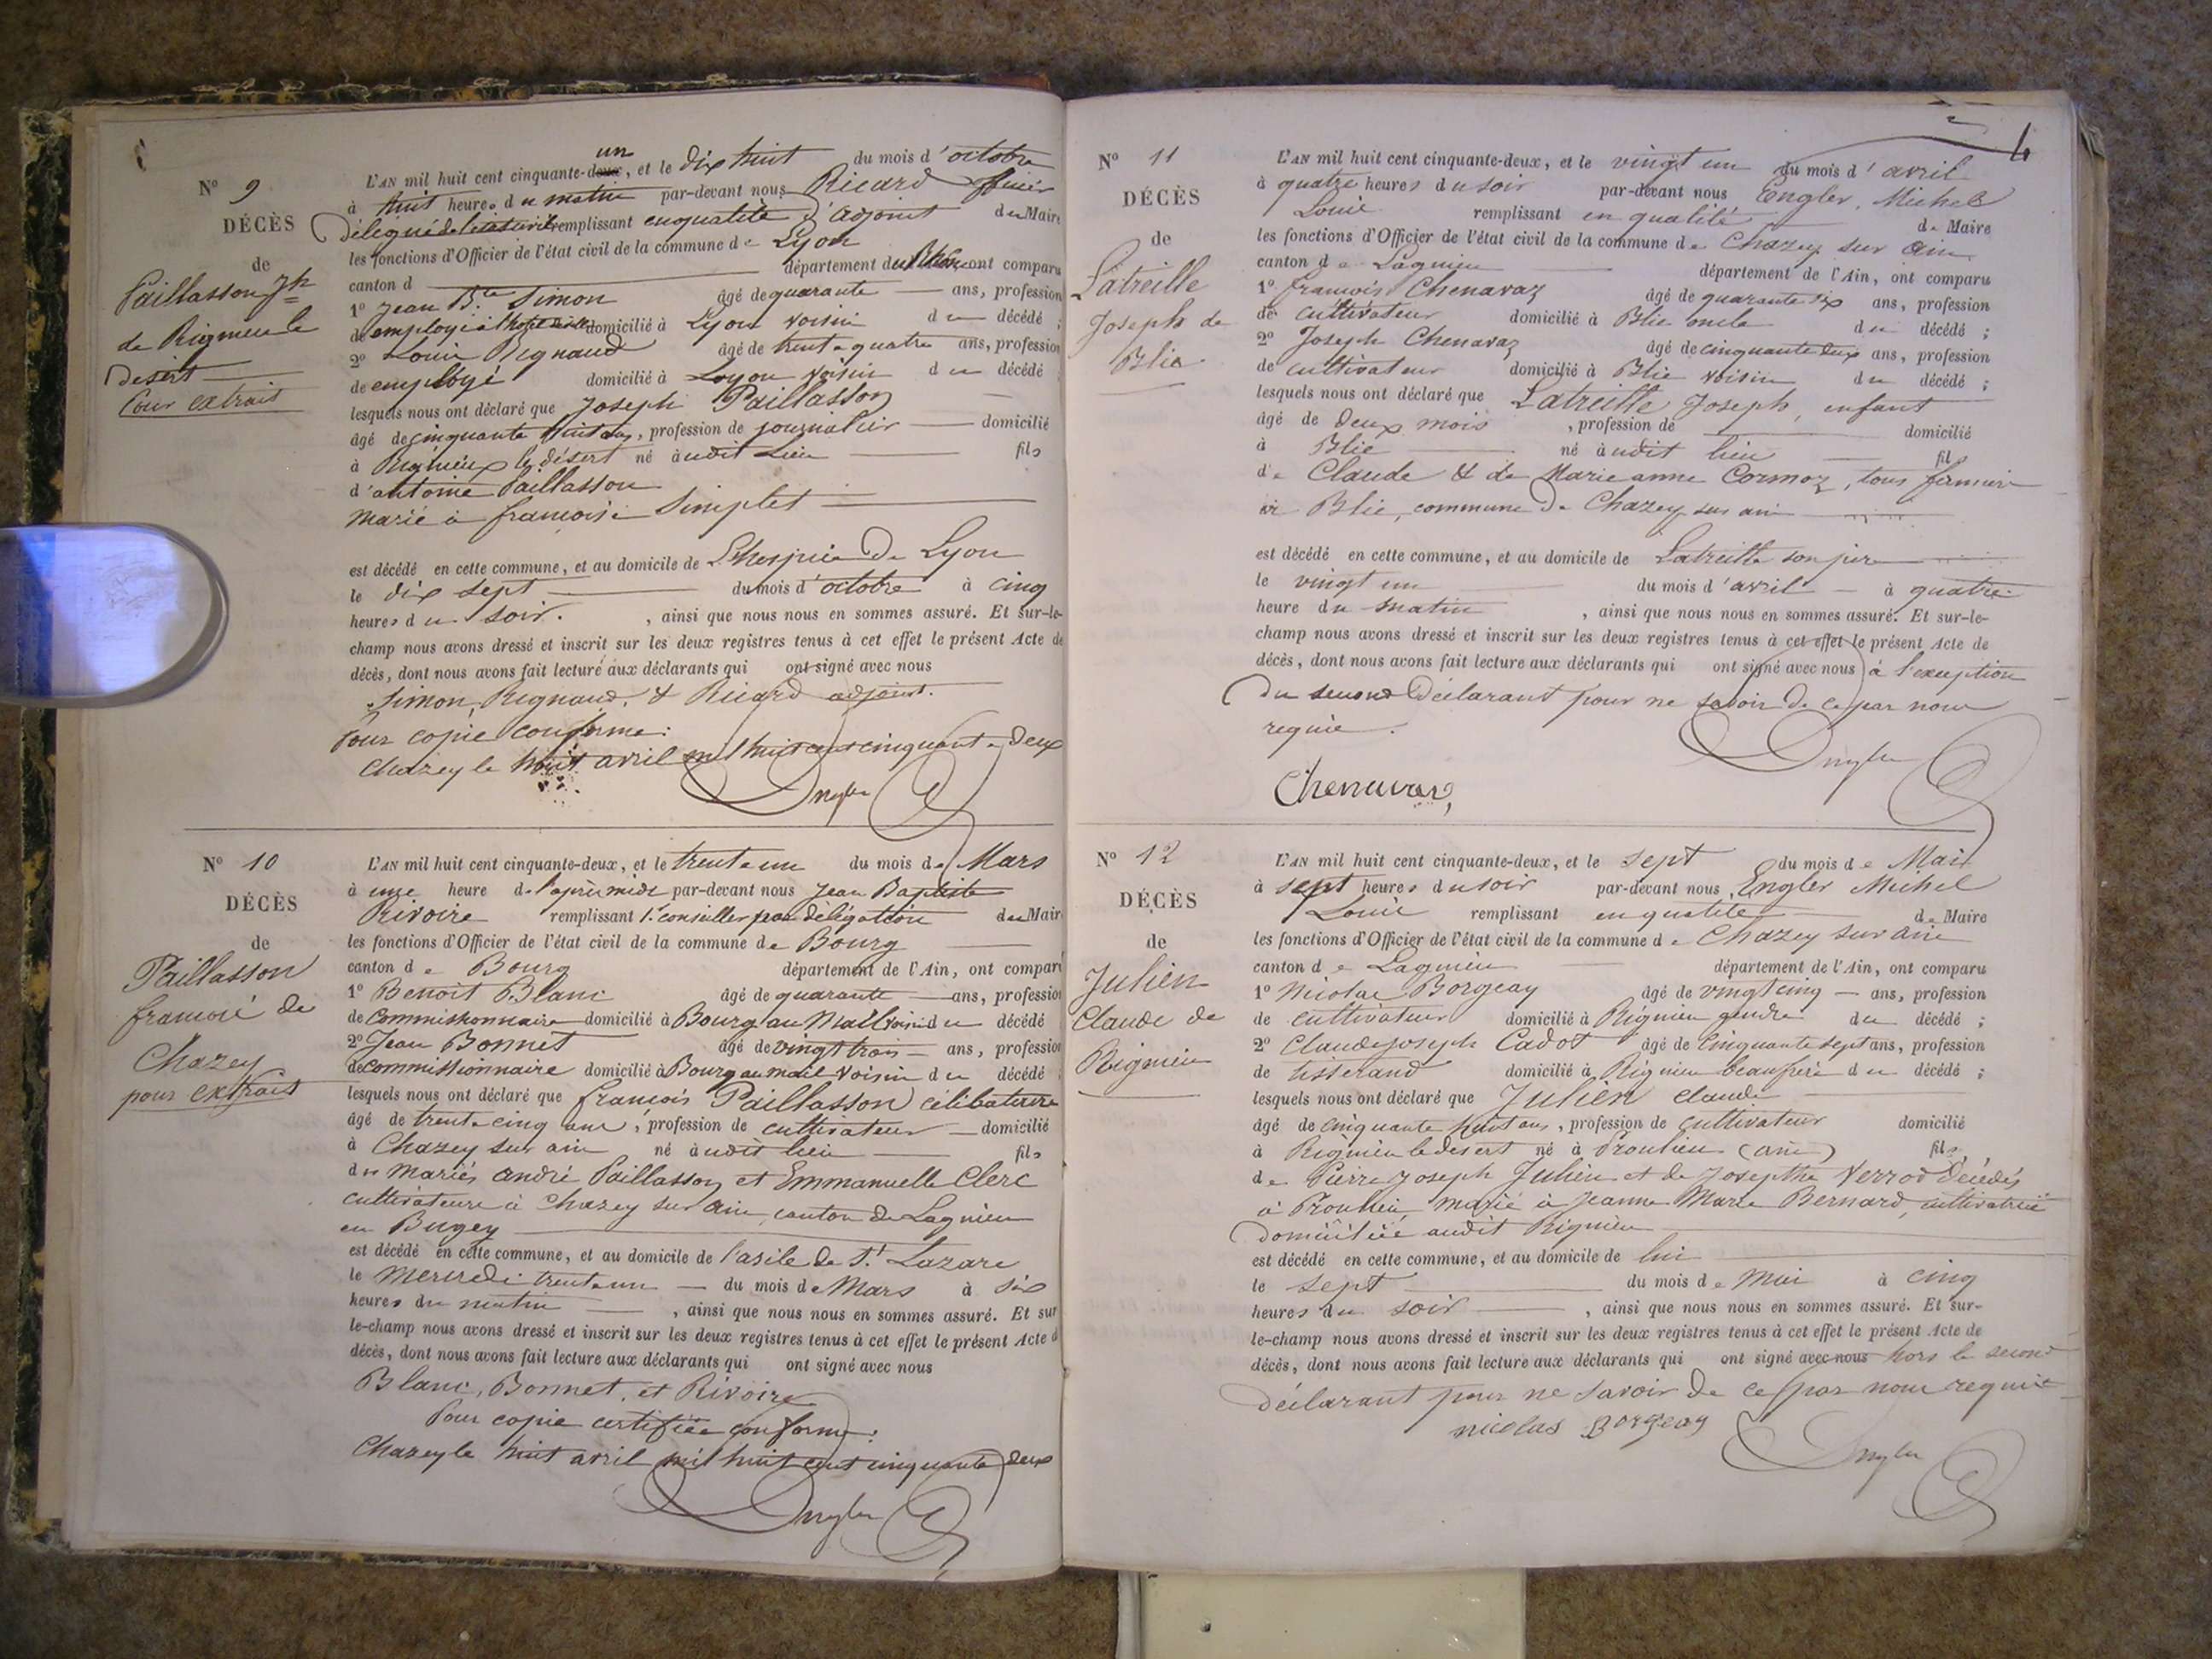 N° 9
DÉCÈS
de
Paillasson Jh
de Rigneu le
désert
Pour extrait
un
L'AN mil huit cent cinquante-deux, et le dix huit du mois d'octobre
à huit heures du matin par-devant nous Ricard officier
délégué de l'état civil remplissant en qualité d'adjoint du Maire
les fonctions d'Officier de l'état civil de la commune de Lyon
canton d département du Rhône ont comparu
1° Jean Bte Simon âgé de quarante ans, profession
de employé à domicilié à Lyon voisin du décédé ;
2° Louis Regnaud âgé de trente quatre ans, profession
de employé domicilié à Lyon voisin du décédé
lesquels nous ont déclaré que Joseph Paillasson
âgé de cinquante huit ans, profession de journalier domicilié
à Rigneux le désert né à udit Lieu fils
d'antoine Paillasson
marié à françoise Simplet
est décédé en cette commune, et au domicile de L'hospice De Lyon
le dix sept du mois d'octobre à cinq
heures du soir. , ainsi que nous nous en sommes assuré. Et sur-le-
champ nous avons dressé et inscrit sur les deux registres tenus à cet effet le présent Acte de
décès, dont nous avons fait lecture aux déclarants qui ont signé avec nous
Simon, Regnaud, & Ricard adjoint.
Pour copie conforme :
Chazey le huit avril mil huit cent cinquante deux
Engler
N° 10
DÉCÈS
de
Paillasson
françois de
Chazey
pour extrait
L'AN mil huit cent cinquante-deux, et le trente un du mois de Mars
à une heure de l'après midi par-devant nous Jean Baptiste
Rivoire remplissant 1er conseiller par délégation du Mair
les fonctions d'Officier de l'état civil de la commune de Bourg
canton de Bourg département de l'Ain, ont compar
1° Benoit Blanc âgé de quarante ans, profession
de Commissionnaire domicilié à Bourg au Mail voisin du décédé
2° Jean Bonnet âgé de vingt trois ans, profession
de Commissionnaire domicilié à Bourg au mail voisin du décédé
lesquels nous ont déclaré que françois Paillasson célibataire
âgé de trente cinq ans, profession de cultivateur domicilié
à Chazey sur ain né à udit lieu fils
du mariés andré Paillasson et Emmanuelle Clerc
cultivateurs à Chazey sur ain, canton de Lagnieu
en Bugey
est décédé en cette commune, et au domicile de l'asile de St Lazare
le Mercredi trente un du mois de Mars à six
heures du matin , ainsi que nous nous en sommes assuré. Et sur
le-champ nous avons dressé et inscrit sur les deux registres tenus à cet effet le présent Acte d
décès, dont nous avons fait lecture aux déclarants qui ont signé avec nous
Blanc, Bonnet, et Rivoire
Pour copie certifiée conforme :
Chazey le huit avril mil huit cent cinquante deux
Engler
N° 11
DÉCÈS
de
Latreille
Joseph de
Blie
L'AN mil huit cent cinquante-deux, et le vingt un du mois d'avril
à quatre heures du soir par-devant nous Engler, Michel
Louis remplissant en qualité de Maire
les fonctions d'Officier de l'état civil de la commune de Chazey sur ain
canton de Lagnieu département de l'Ain, ont comparu
1° françois Chenavaz âgé de quarante six ans, profession
de cultivateur domicilié à Blie oncle du décédé ;
2° Joseph Chenavaz âgé de cinquante deux ans, profession
de cultivateur domicilié à Blie voisin du décédé ;
lesquels nous ont déclaré que Latreille Joseph, enfant
âgé de deux mois , profession de domicilié
à Blie né à udit lieu fils
de Claude & de Marie anne Cormoz, tous fermiers
à Blie, commune De Chazey sur ain
est décédé en cette commune, et au domicile de Latreille son père
le vingt un du mois d'avril à quatre
heure du matin , ainsi que nous nous en sommes assuré. Et sur-le-
champ nous avons dressé et inscrit sur les deux registres tenus à cet effet le présent Acte de
décès, dont nous avons fait lecture aux déclarants qui ont signé avec nous à l'exception
du second Déclarant pour ne savoir De ce par nous
requis.
Engler
Chenavaz
N° 12
DÉCÈS
de
Julien
Claude de
Rignieu
L'AN mil huit cent cinquante-deux, et le sept du mois de Mai
à sept heures du soir par-devant nous Engler Michel
Louis remplissant en qualité de Maire
les fonctions d'Officier de l'état civil de la commune de Chazey sur ain
canton de Lagnieu département de l'Ain, ont comparu
1° Nicolas Borgeay âgé de vingt cinq ans, profession
de cultivateur domicilié à Rignieu gendre du décédé ;
2° Claude joseph Cadot âgé de Cinquante sept ans, profession
de tisserand domicilié à Rignieu beaufrère du décédé ;
lesquels nous ont déclaré que Julien claude
âgé de cinquante huit ans, profession de cultivateur domicilié
à Rignieu le désert né à Proulieu (ain) fils
de Pierre joseph Julien et de Josephte Verrod Décédés
à Proulieu, marié à Jeanne Marie Bernard, cultivatrice
Domiciliée audit Rignieu
est décédé en cette commune, et au domicile de lui
le sept du mois de Mai à cinq
heures du soir , ainsi que nous nous en sommes assuré. Et sur-
le-champ nous avons dressé et inscrit sur les deux registres tenus à cet effet le présent Acte de
décès, dont nous avons fait lecture aux déclarants qui ont signé avec nous hors le second
déclarant pour ne savoir de ce par nous requis
nicolas Borgeay
Engler